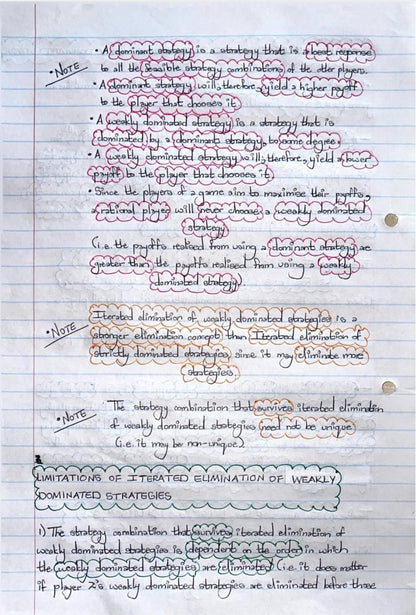 • A dominant strategy is a strategy that is a best response
• NOTE
to all the feasible strategy combinations of the other players.
• A dominant strategy will, therefore, yield a higher payoff
to the player that chooses it.
• A weakly dominated strategy is a strategy that is
dominated by a dominant strategy, to some degree.
• A weakly dominated strategy will, therefore, yield a lower
payoff to the player that chooses it.
• Since the players of a game aim to maximise their payoffs,
a rational player will never choose a weakly dominated
strategy.
(i.e. the payoffs realised from using a dominant strategy are
greater than the payoffs realised from using a weakly
dominated strategy)
Iterated elimination of weakly dominated strategies is a
• NOTE
stronger elimination concept than Iterated elimination of
strictly dominated strategies since it may eliminate more
strategies.
• NOTE
The strategy combination that survives iterated elimination
of weakly dominated strategies need not be unique
(i.e. it may be non-unique)
LIMITATIONS OF ITERATED ELIMINATION OF WEAKLY
DOMINATED STRATEGIES
1) The strategy combination that survives iterated elimination of
weakly dominated strategies is dependent on the order in which
the weakly dominated strategies are eliminated (i.e. it does matter
if player 2's weakly dominated strategies are eliminated before those